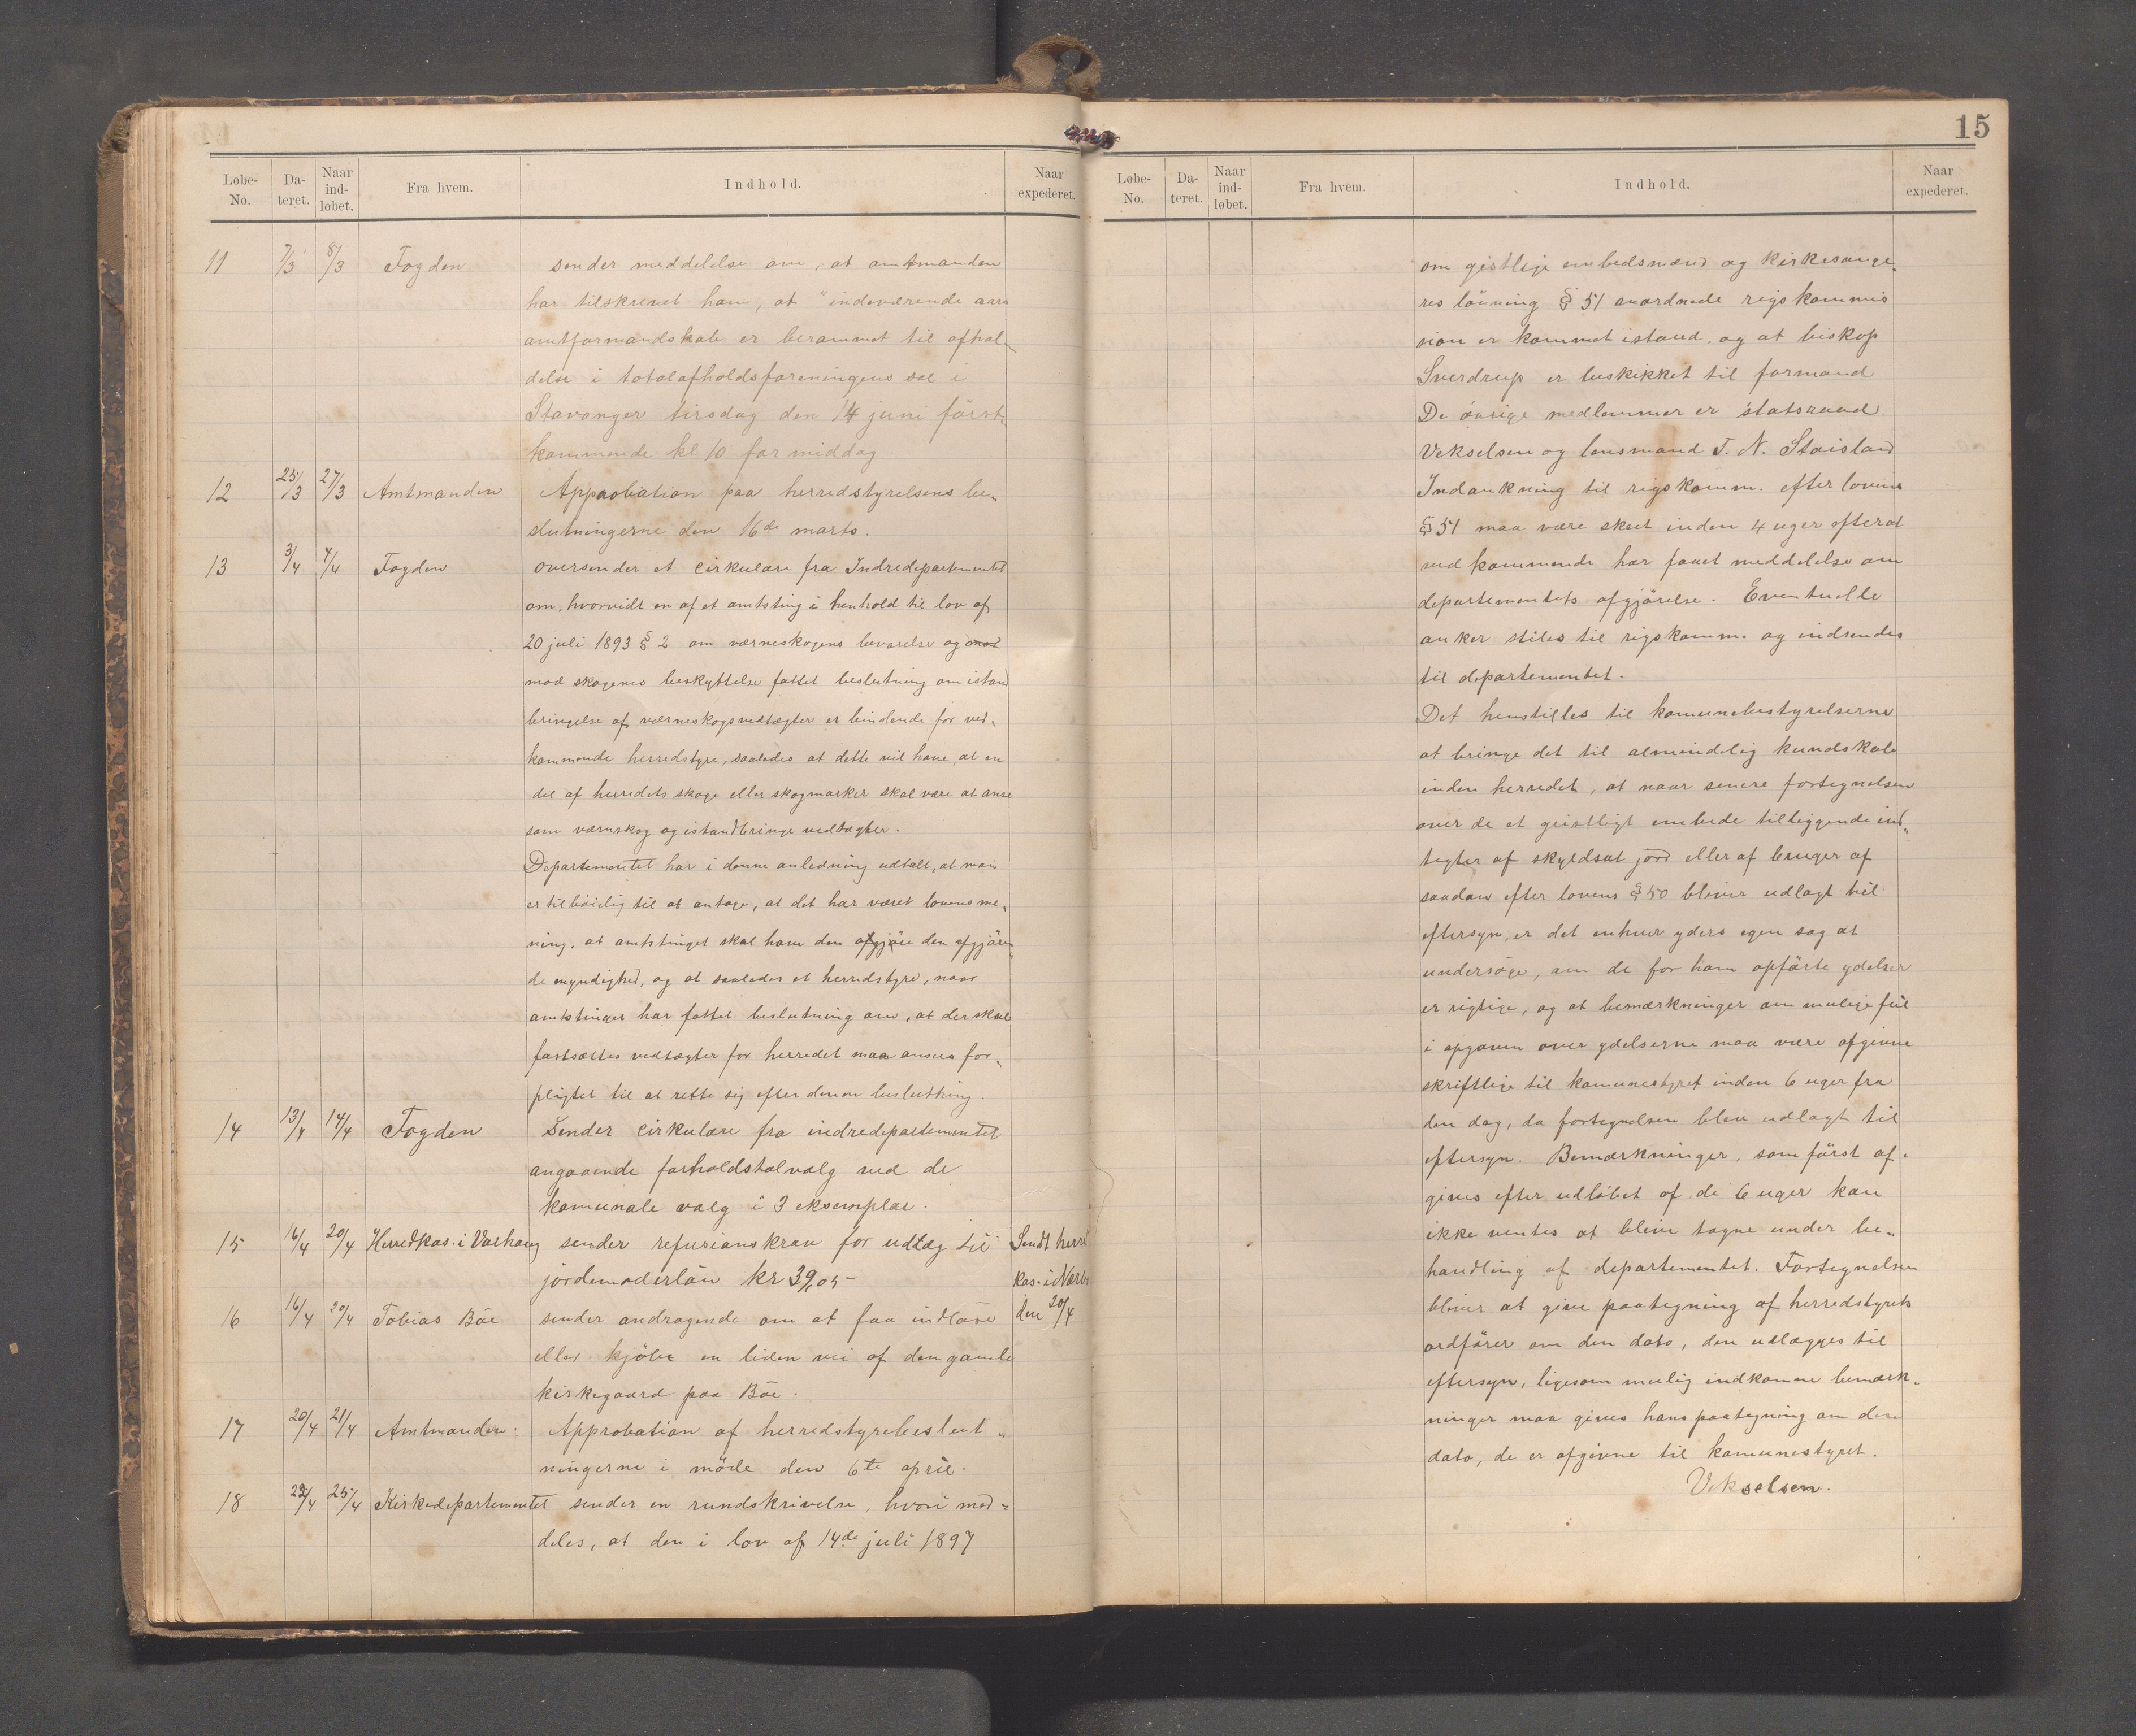 Løbe-No. Da-teret. Naar ind-løbet. Fra hvem. Indhold. Naar expederet.
11 7/3 8/3 Fogden sender meddelelse om, at amtmanden
har tilskrevet ham, at "indeværende aars
amtformandskab er berammet til afhol-
delse i totalafholdsforeningens sal i
Stavanger tirsdag den 14 juni först-
kommende kl 10 formiddag
12 25/3 27/3 Amtmanden Approbation paa herredstyrelsens be-
slutningerne den 16de marts.
13 3/4 4/4 Fogden oversender et cirkulære fra Indredepartementet
om, hvorvidt en af et amtsting i henhold til lov af
20 juli 1893 § 2 om værneskogens bevarelse og mod
mod skogens beskyttelse fattet beslutning om istand
bringelse af værneskogsvedtægter er bindende for ved-
kommende herredstyre, saaledes at dette vil have, at en
del af herredets skoge eller skogmarker skal være at anse
som værnskog og istandbringe vedtægter.
Departementet har i denne anledning udtalt, at man
er tilböielig til at antage, at det har været lovens me-
ning, at amtstinget skal have den afgjöre den afgjören-
de myndighed, og at saaledes et herredstyre, naar
amtstinget har fattet beslutning om, at der skal
fastsættes vedtægter for herredet maa ansees for-
pligtet til at rette sig efter denne beslutning.
14 13/4 14/4 Fogden Sender cirkulære fra indredepartementet
angaaende forholdstalvalg ved de
komunale valg i 3 eksemplar.
15 16/4 20/4 Herredkas. i Varhaug sender refusionskrav for udlæg til Sendt herred
jordemoderlön kr 39,05 - kas. i Nærbö
16 16/4 20/4 Tobias Böe sender andragende om at faa indlöse den 20/4
eller kjöbe en liden vei af den gamle
kirkegaard paa Böe.
17 20/4 21/4 Amtmanden: Approbation af herredstyrebeslut-
ningerne i möde den 6te april.
18 22/4 25/4 Kirkedepartementet sender en rundskrivelse, hvori med-
deles, at den i lov af 14de juli 1897
15
Løbe-No. Da-teret. Naar ind-løbet. Fra hvem. Indhold. Naar expederet.
om gistlige embedsmænd og kirkesange-
res lönning § 51 anordnede rigskommis
sion er kommet istand, og at biskop
Sverdrup er beskikket til formand
De övrige medlemmer er statsraad
Vekselsen og lensmand T. N. Stoisland
Indankning til rigskomm. efter lovens
§ 51 maa være skeet inden 4 uger efterat
vedkommende har faaet meddelelse om
departementets afgjörelse. Eventuelle
anker stiles til rigskomm. og indsendes
til departementet.
Det henstilles til komunebestyrelserne
at bringe det til almindelig kundskab
inden herredet, at naar senere fortegnelsen
over de et geistligt embede tilliggende ind-
tegter af skyldsat jord eller af bruger af
saadan efter lovens § 50 bliver udlagt til
eftersyn, er det enhver yders egen sag at
undersöge, om de for ham opförte ydelser
er rigtige, og at bemærkninger om mulige feil
i opgaven over ydelserne maa være afgivne
skriftlige til komunestyret inden 6 uger fra
den dag, da fortegnelsen blev udlagt til
eftersyn. Bemærkninger, som först af-
gives efter udlöbet af de 6 uger kan
ikke ventes at blive tagne under be-
handling af departementet. Fortegnelsen
bliver at give paategning af herredstyrets
ordförer om den dato, den udlægges til
eftersyn, ligesom mulig indkomne bemærk-
ninger maa gives hans paategning om den
dato, de er afgivne til komunestyret.
Vekselsen.